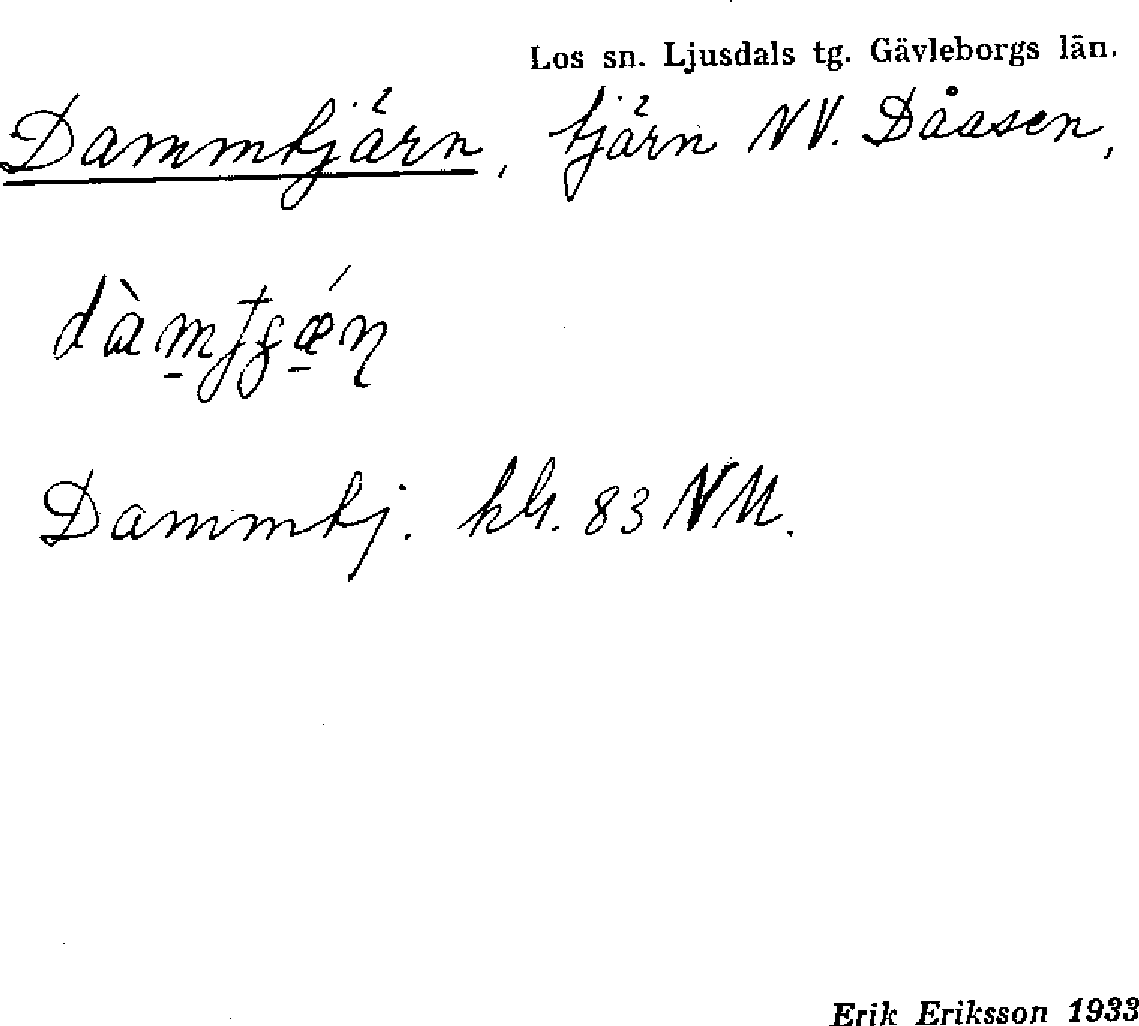 Los sn. Ljusdals tg. Gävleborgs län.
Dammtjärn, tjärn NV. Dåasen,
Dammtj. 83 NM.
Erik Eriksson 1933